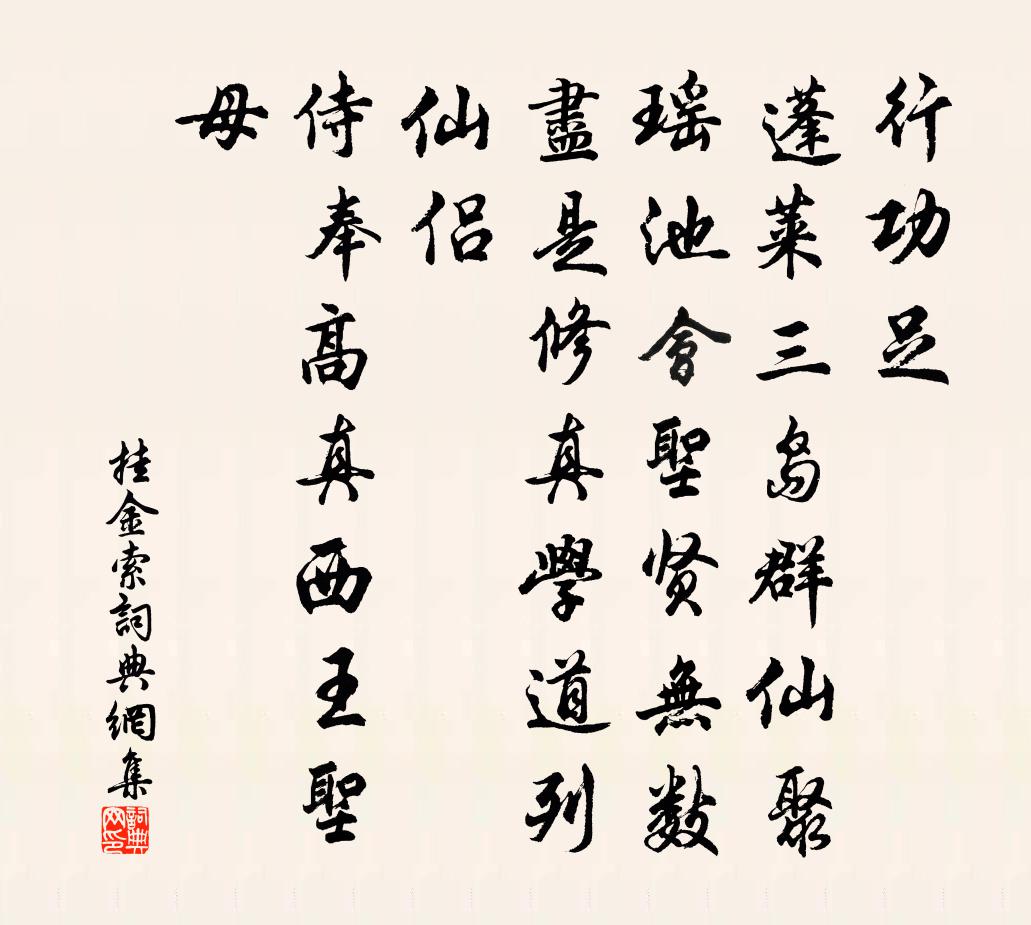 行功足
蓬萊三島群仙聚
瑤池會聖賢無數
盡是修真學道列
仙侶
侍奉高真西王聖
母
挂金索詞典網集
詞典
网印